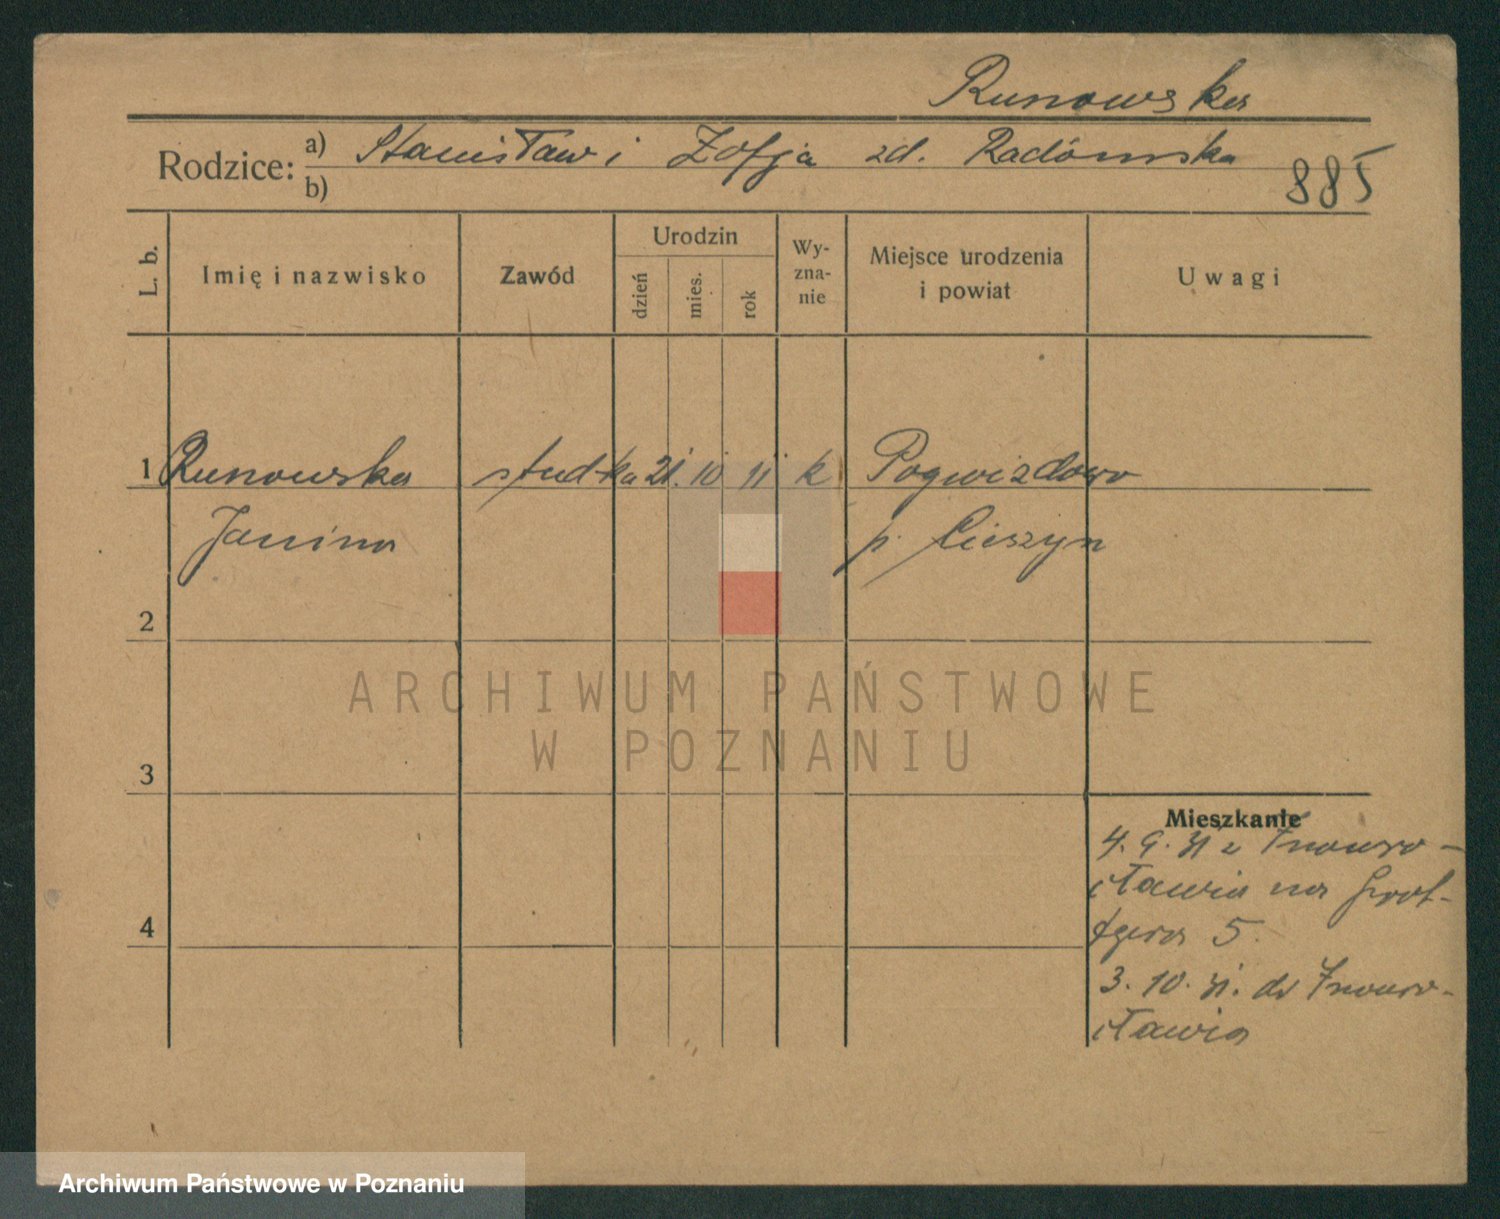 Runowska
Rodzice: a) Stanisław i Zofja zd. Radómska
b)
885
L. b.
Imię i nazwisko
Zawód
Urodzin
dzień
mies.
rok
Wy-
zna-
nie
Miejsce urodzenia
i powiat
Uwagi
1 Runowska studka 21. 10 11 k Pogwizdowo
Janina p. Cieszyn
2
ARCHIWUM PAŃSTWOWE
W POZNANIU
3
Mieszkanie
4. 9. 31 z Inowro-
cławia na Grot-
tgera 5.
4
3. 10. 31. do Inowro-
cławia
Archiwum Państwowe w Poznaniu